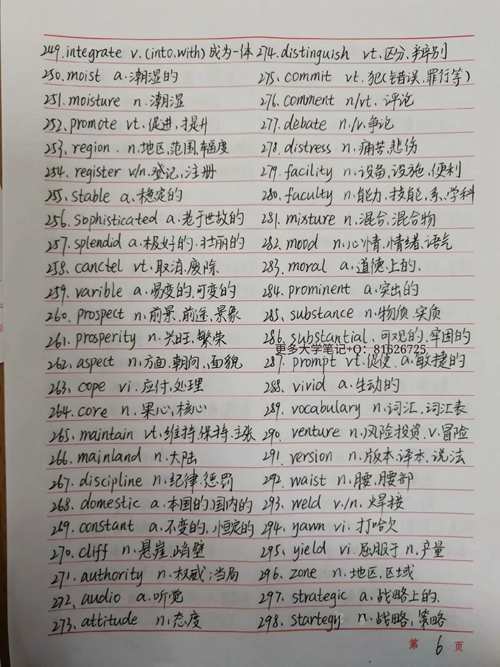 249. integrate v. (into.with) 成为一体
250. moist a. 潮湿的
251. moisture n. 潮湿
252. promote vt. 促进, 提升
253. region. n. 地区, 范围, 幅度
254. register v/n. 登记, 注册
255. stable a. 稳定的
256. sophisticated a. 老于世故的
257. splendid a. 极好的, 壮丽的
258. canctel vt. 取消, 废除
259. varible a. 易变的, 可变的
260. prospect n. 前景, 前途, 景象
261. prosperity n. 兴旺, 繁荣
262. aspect n. 方面, 朝向, 面貌
263. cope vi. 应付, 处理
264. core n. 果心, 核心
265. maintain vt. 维持, 保持, 主张
266. mainland n. 大陆
267. discipline n. 纪律, 惩罚
268. domestic a. 本国的, 国内的
269. constant a. 不变的, 恒定的
270. cliff n. 悬崖, 峭壁
271. authority n. 权威, 当局
272. audio a. 听觉
273. attitude n. 态度
274. distinguish vt. 区分, 辨别
275. commit vt. 犯(错误、罪行等)
276. comment n/vt. 评论
277. debate n./v. 争论
278. distress n. 痛苦, 悲伤
279. facility n. 设备, 设施, 便利
280. faculty n. 能力, 技能, 系, 学科
281. mixture n. 混合, 混合物
282. mood n. 心情, 情绪, 语气
283. moral a. 道德上的.
284. prominent a. 突出的
285. substance n. 物质, 实质
286. substantial. 可观的, 牢固的
更多大学笔记+Q: 81626725
287. prompt vt. 促使 a. 敏捷的
288. vivid a. 生动的
289. vocabulary n. 词汇, 词汇表
290. venture n. 风险投资, v. 冒险
291. version n. 版本, 译本, 说法
292. waist n. 腰, 腰部
293. weld v./n. 焊接
294. yawn vi. 打哈欠
295. yield vi. 屈服于 n. 产量
296. zone n. 地区, 区域
297. strategic a. 战略上的.
298. startegy n. 战略, 策略
第 6 页